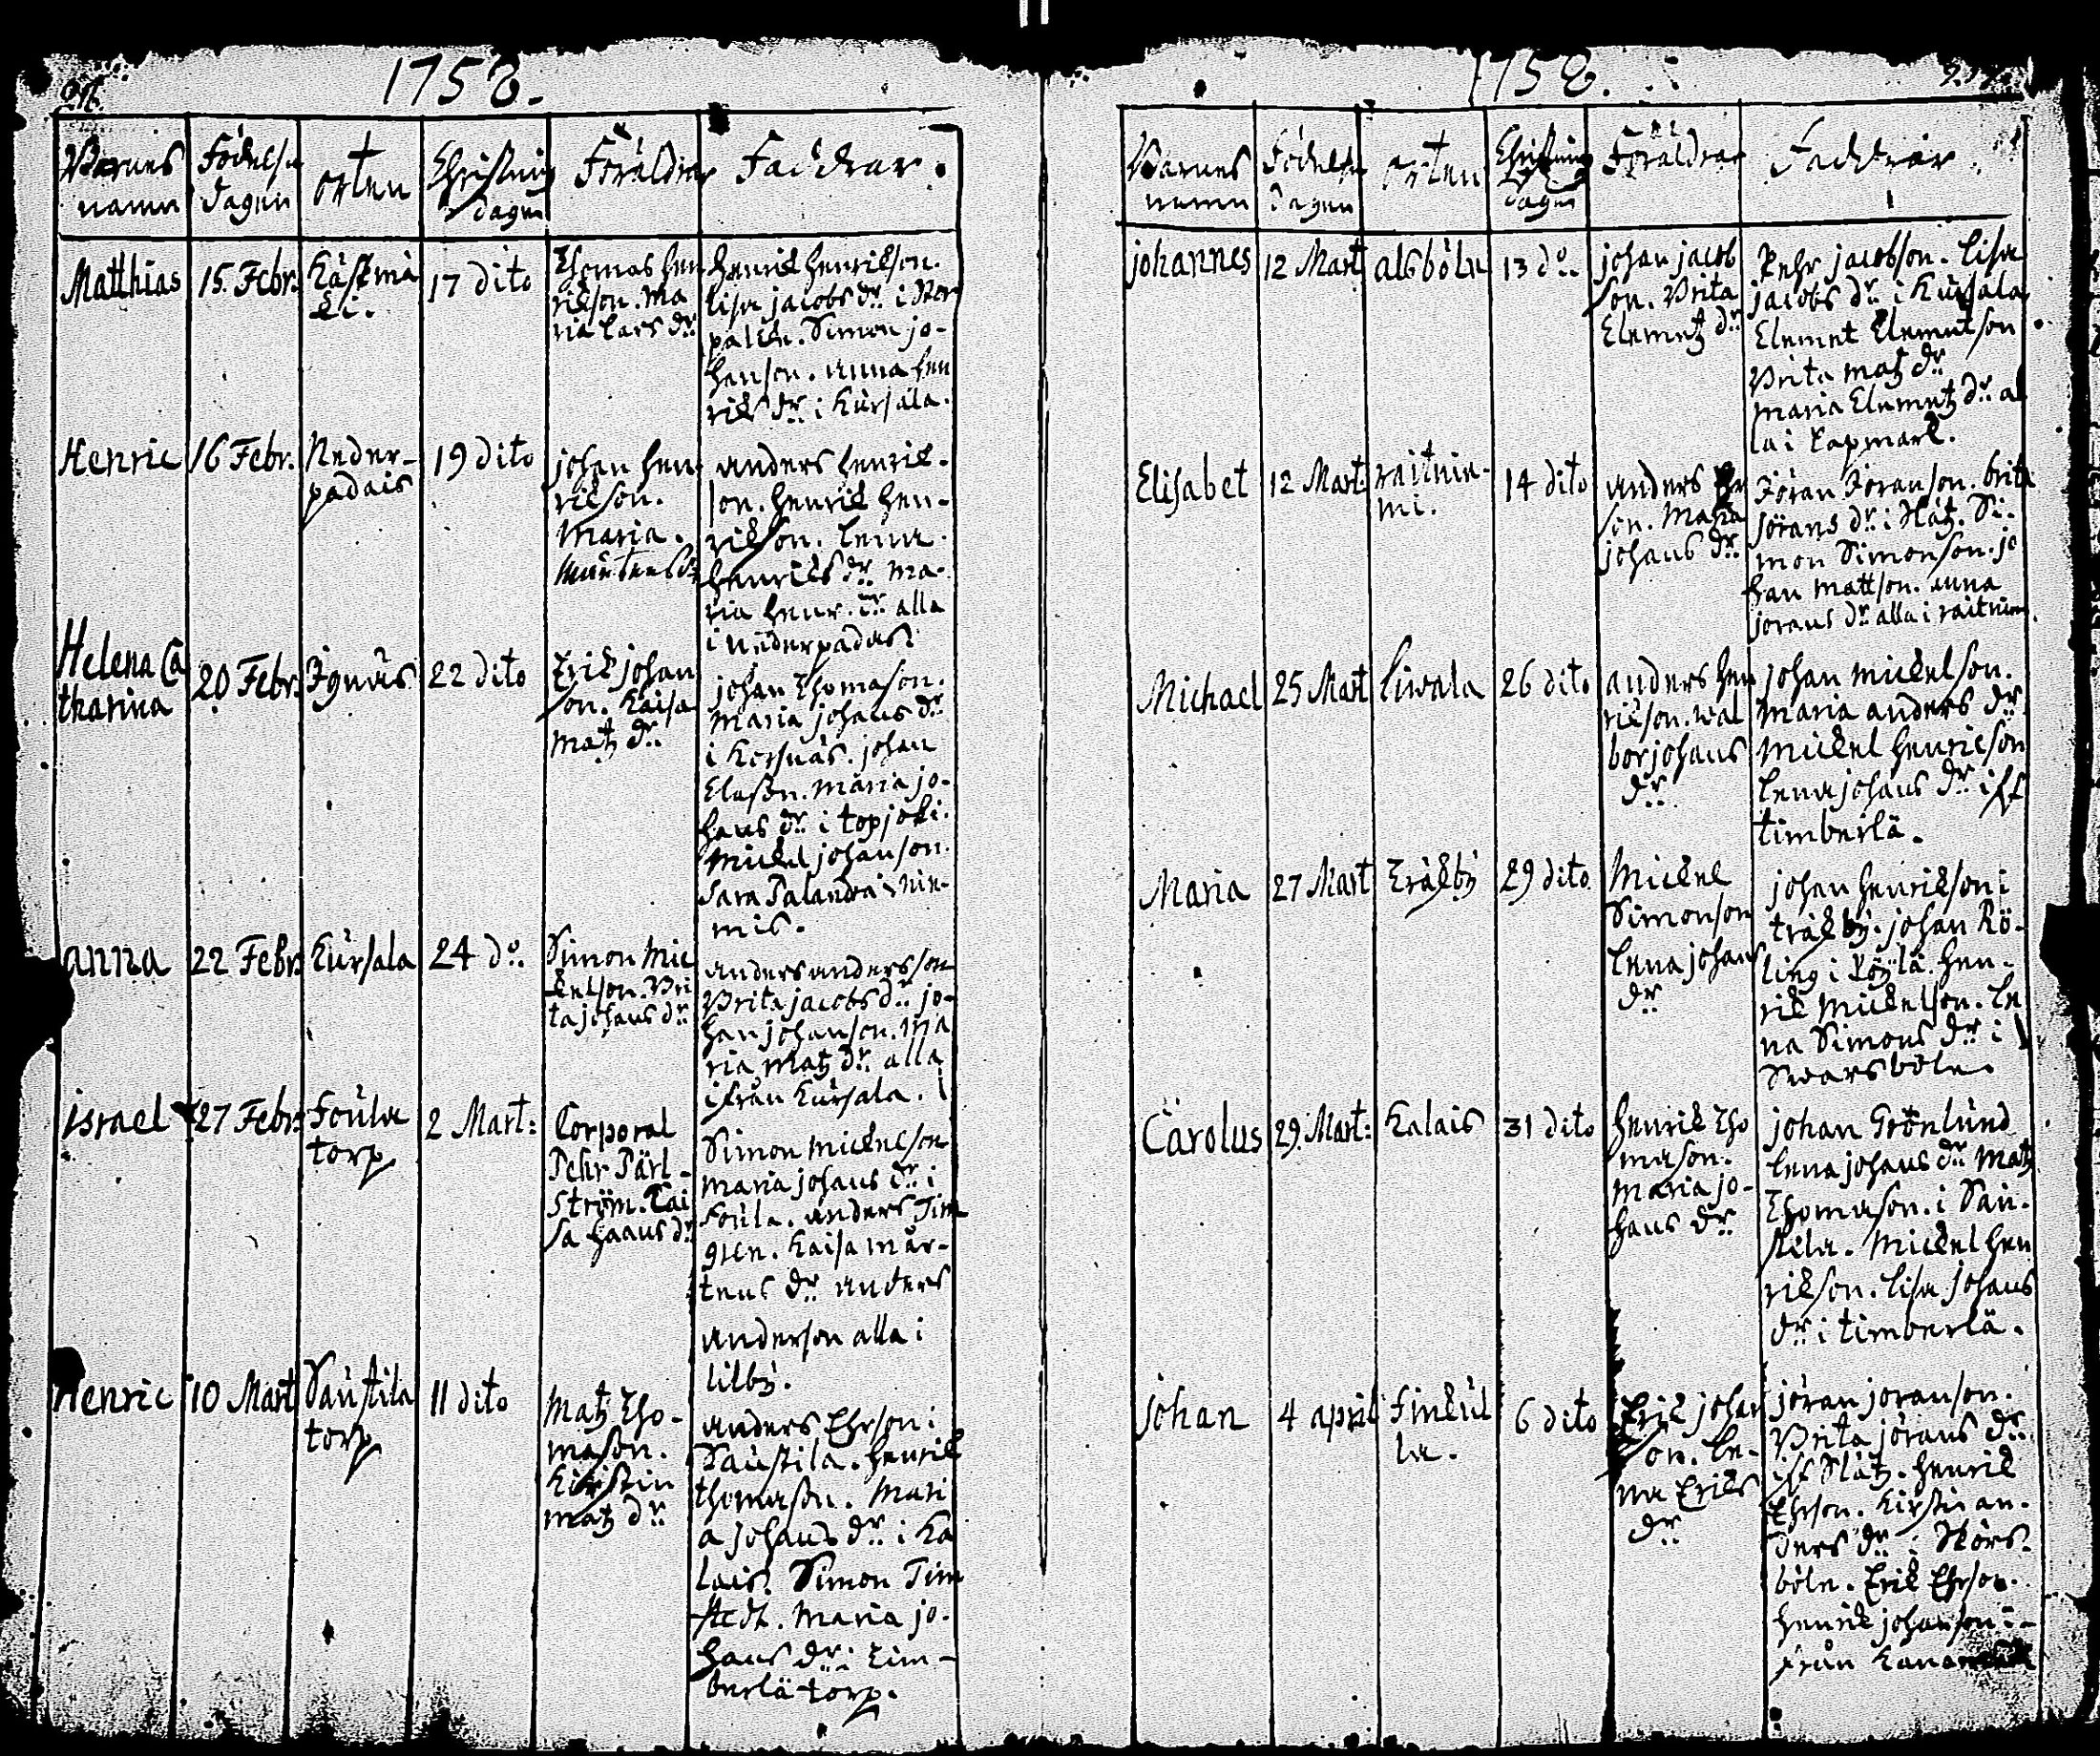 1758.
Barnes namn
Födelse dagen
orten
Christning dagen
Föräldrar
Faddrar.
Matthias
15. Febr.
Käkimä
ki.
17 dito
Thomas Hen
rikson. Ma
ria Lars dr.
Henrik Henrikson.
Lisa Jacobs dr. i Nor
Simon jo-
hanson. Anna Hen
riks dr. i Kursala.
Henric
16 Febr.
Neder-
padais
19 dito
johan Hen
rikson.
Maria.
Mårtens dr
anders Henrik-
son. Henrik Hen-
rikson. Lena
Henriks dr. Ma-
ria Henr. dr. alla
i Nederpadais.
Helena Ca
tharina
20 Febr.
Ignäs
22 dito
Erik johan
son. Kaisa
Matz dr.
johan Thomason.
Maria johans dr.
i Korsnäs. johan
Clason. Maria jo-
hans dr. i topjoki.
Mickel johanson.
Sara Palandra i Nin-
mis.
anna
22 Febr.
Kursala
24 do.
Simon Mic
kelson. Bri
ta johans dr.
anders andersson
Brita jacobs dr. jo-
han johanson. Ma
ria Matz dr. alla
ifrån Kursala.
israel
27 Febr.
Soula
torp
2 Mart:
Corporal
Pehr Pärl-
ström. Cai
sa Haans dr
Simon Mickelson
Maria johans dr. i
Soula. anders Tim
gren. Kaisa Mår-
tens dr anders
anderson alla i
lilby.
Henric
10 Mart
Saustila
torp
11 dito
Matz Tho-
mason.
Kirstin
Matz dr.
anders Ehrson i
Saustila. Henrik
thomason. Mari
a johans dr. i Ka
lais. Simon Tim
stedt. Maria jo-
hans dr. i Tim-
berlä torp.
1758.
Barnes namn
Födelse dagen
orten
Christning dagen
Föräldrar
Faddrar.
johannes
12 Mart
alsböle
13 do.
johan jacob
son. Brita
Clemetz dr
Pehr jacobson. Lisa
jacobs dr. i Kursala
Clemet Clemetson
Brita Matz dr.
Maria Clemetz dr. al
la i Lapmark.
Elisabet
12 Mart.
raitnie-
mi.
14 dito
anders Er
son. Maria
johans dr.
Jöran Jöranson. brita
Jörans dr. i Slätz. Si-
mon Simonson. jo
han Mattson. anna
jorans dr. alla i raitniemi
Michael
25 Mart
Liwala
26 dito
anders Hen
rikson. Wal
bor johans
dr.
johan Mickelson.
Maria anders dr.
Mickel Henricson
Lena johans dr. iff
timberlä.
Maria
27 Mart
Träkby
29 dito
Mickel
Simonson
Lena johans
dr
johan Henrikson i
träkby. johan Rö-
ling i Röylä. Hen-
rik Mickelson. Le
na Simons dr. i
Swarsböle.
Carolus
29. Mart:
Kalais
31 dito
Henrik Tho
mason.
Maria jo-
hans dr.
johan Grönlund
Lena johans dr. Matz
Thomason. i Sau-
stila. Mickel Hen
rikson. Lisa johans
dr. i timberlä.
johan
4 april
Finkul
la.
6 dito
Erik johan
son. Le-
na Eriks
dr.
jöran joranson.
Brita jörans dr.
iff Slätz. Henrik
Ehrson. Kirstin an-
ders dr. i Störs-
böle. Erik Ehrson.
Henrik johanson i-
från